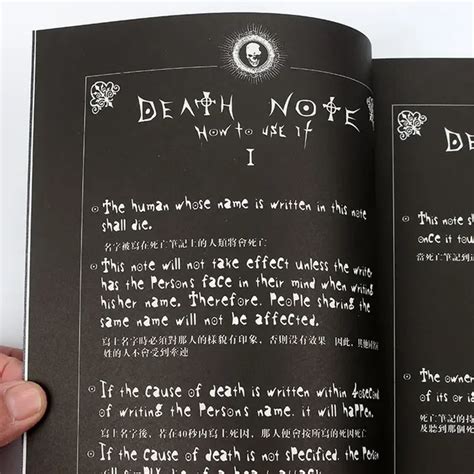 DEATH NOTE
HOW TO USE IT
I
The human whose name is written in this note
shall die.
名字被寫在死亡筆記上的人類將會死亡
This note will not take effect unless the write
has the Persons face in their mind when writing
hisher name. Therefore. People sharing the
same name will not be affected.
寫上名字時必須對那人的樣貌有印象，否則沒有效果 因此，其他同名
姓的人不會受到牽連
If the cause of death is written within 40second
of writing the Persons name. it will happen.
寫上名字後，若在40秒內寫上死因，那人便會按所寫的死因死亡
If the cause of death is not specified. the Person
DEA
This note s
once it tou
當死亡筆記到
The owner
of its or i
死亡筆記的持